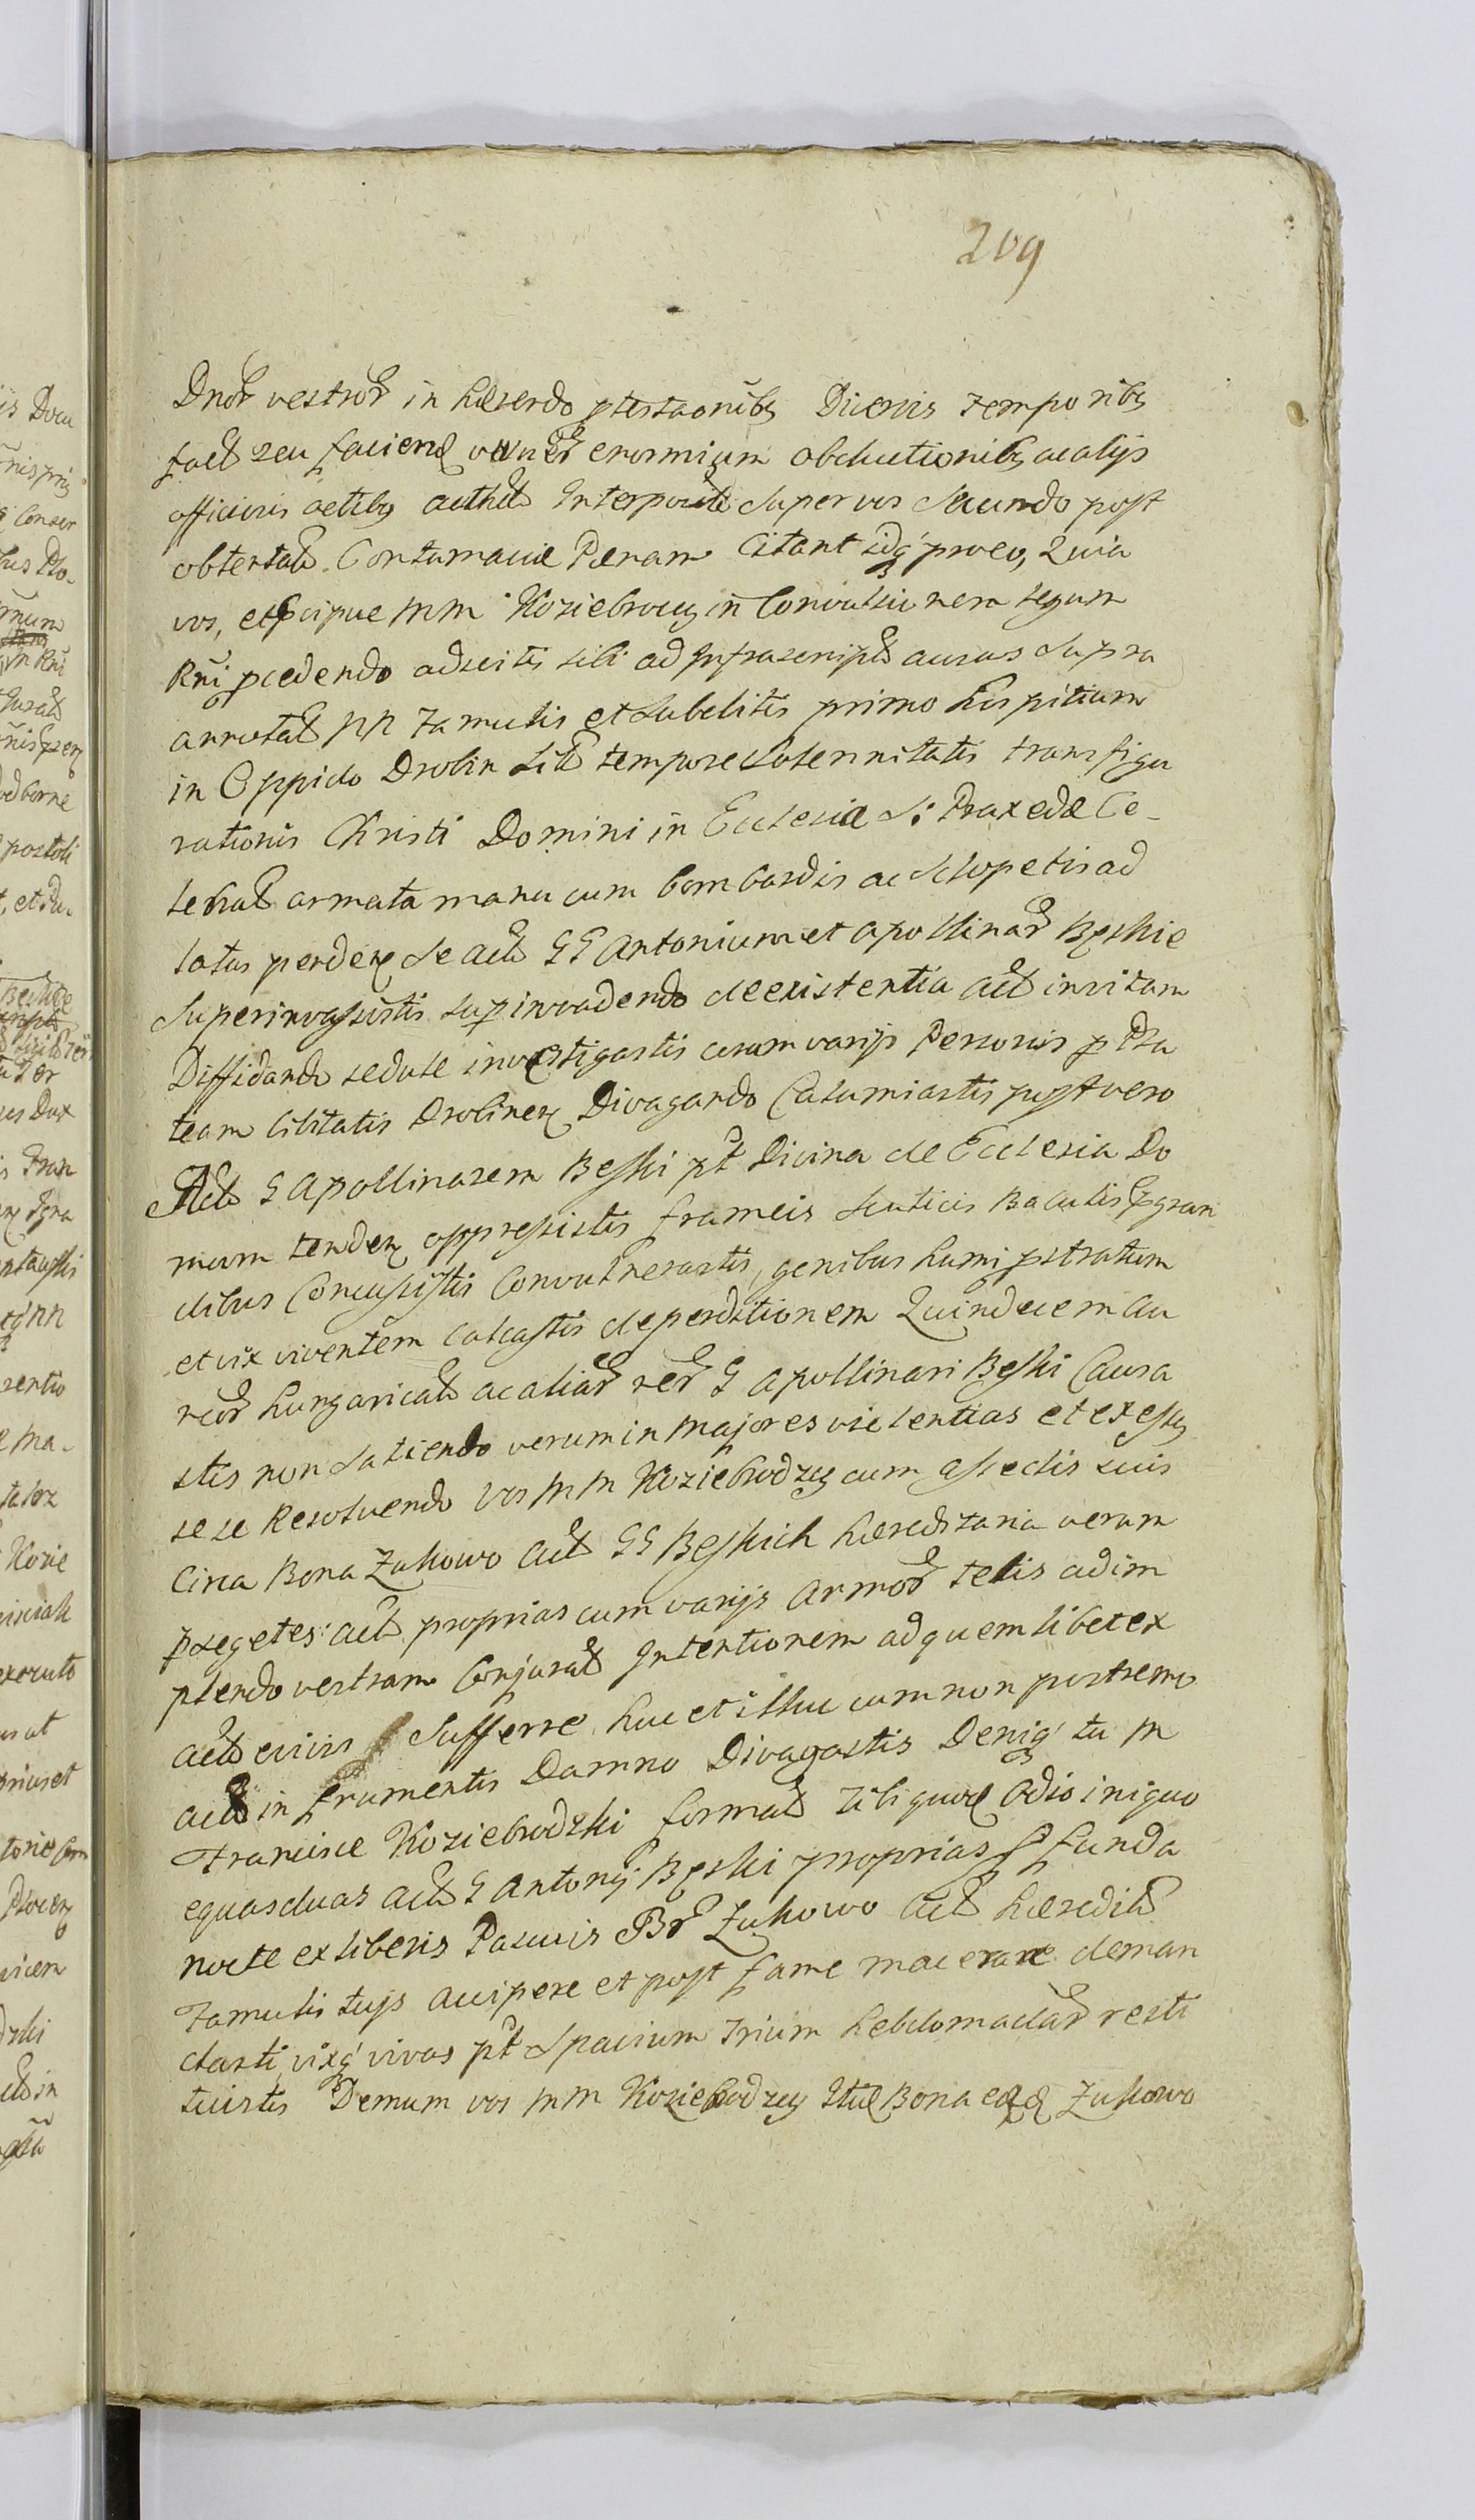 209
Dnor vestror in hærendo ptestaonibg Diversis temporibg
fact seu faciend vulner enormium obductionibg ac alijs
officiosis actibg authen Interposit super vos secundo post
obtentam Contumaciæ Pænam Citant idq proeo, Quia
vos, et pcipue MM Koziebrocy in Convulsionem legum
Rni pcedendo adscitis sibi ad Infrascript ausus supra
annotat NN Famulis et subditis primo hospitium
in Oppido Drobin sit tempore solennitatis transfigu
rationis Christi Domini in Ecclesia S: Praxedæ Ce-
lebrat armata manu cum bombardis ac sclopetis ad
latus penden se act GG Antonium et Apollinar Bęskie
superinvasistis supinvadendo de existentia act invitam
Diffidando sedule investigastis cum varijs Personis p Pla
team Civitatis Drobinen Divagando Calumiastis post vero
Act G Apollinarem Beski pt Divina de Ecclesia Do
mum tenden oppressistis frameis scuticis Baculis gran
dibus Concussistis Convulnerastis, genibus humi pstratum
et vix viventem calcastis deperditionem Quindecem Au
reor hungarical ac aliar rer G Apollinari Beski Causa
stis non satiendo verum in majores violentias et excessus
sese Resolvendo vos MM Koziebrodzcy cum asseclis suis
Circa Bona Zukowo Act GG Beskich hæreditaria verum
p segetes act proprias cum varijs Armor telis adim
plendo vestram Conjurat Intentionem ad quemlibet ex
act eivis Sufferre huc et illuc cum non postremo
act in frumentis Damno Divagastis Deniq tu M
Francisce Koziebrodzki format Tibi quod odio iniquo
equas duas act G Antonij Bęski proprias funda
nocte ex liberis Pascuis Br Zukowo act hæredit
Famulis tuis accipere et post fame macerare deman
dasti, vixq vivas pt spacium trium hebdomadar resti
tuistis Demum vos MM Koziebrodzcy Bona Zukowo